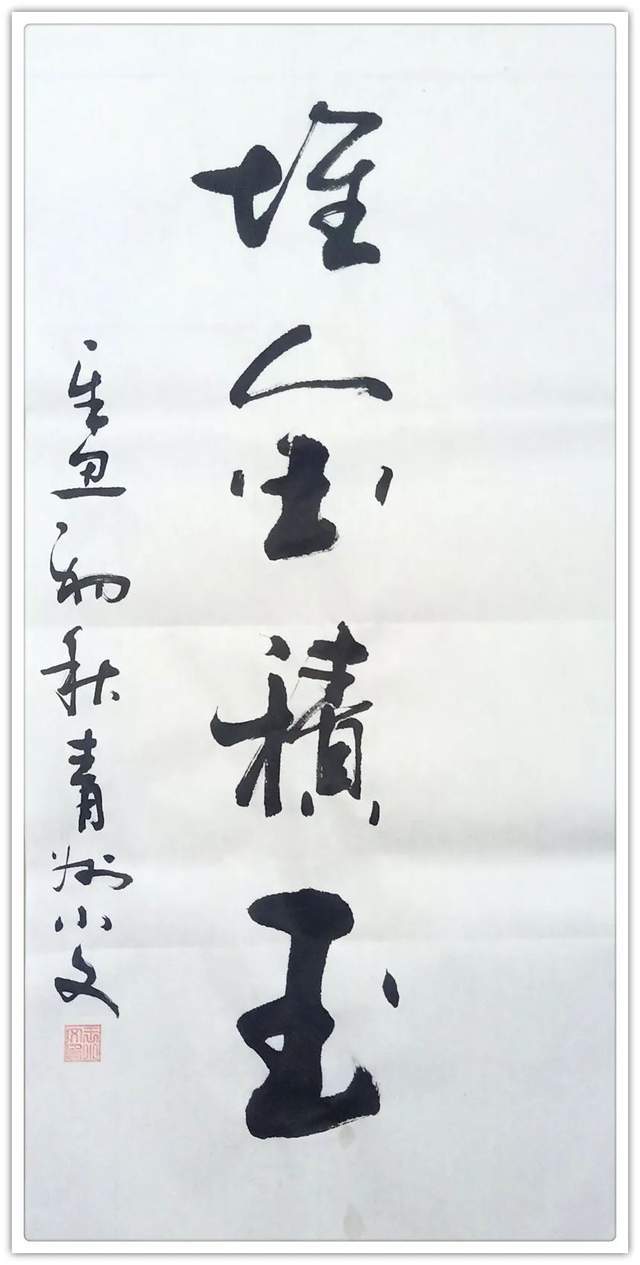 堆金積玉
辛丑初秋青州小文